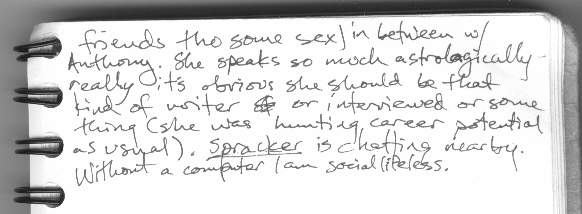 friends tho some sex) in between w/
Anthony. She speaks so much astrologically
really it's obvious she should be that
kind of writer or interviewed or some
thing (she was hunting career potential
as usual). Spracker is chatting nearby.
Without a computer I am social lifeless.